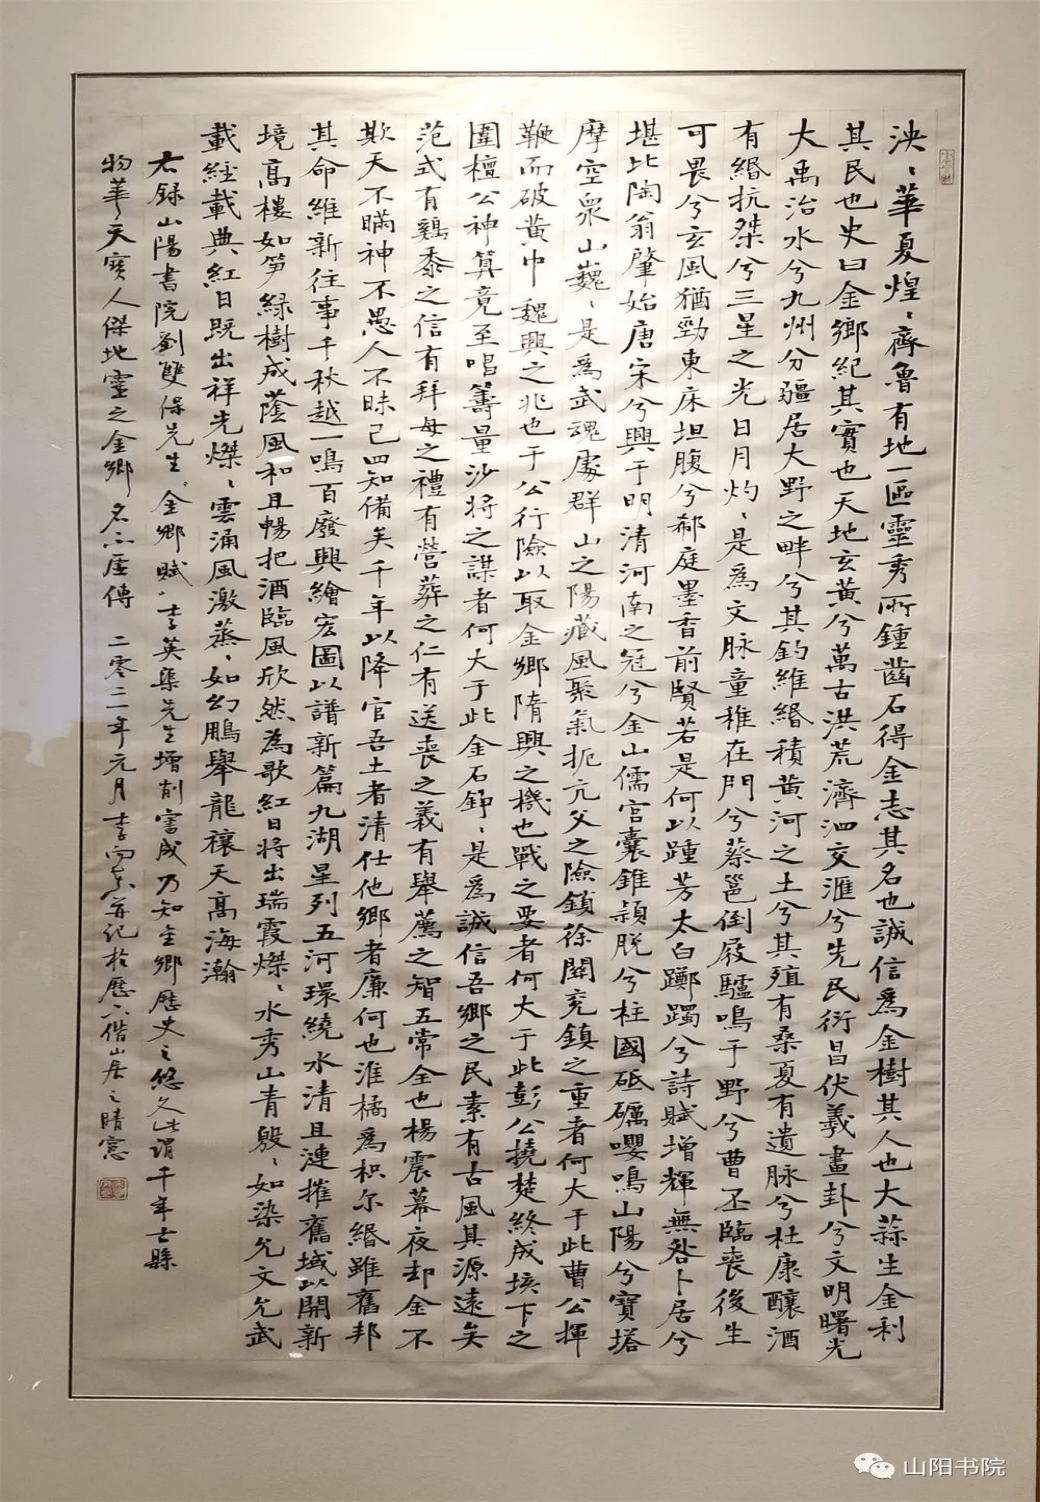 泱〻華夏煌〻齊魯有地一區靈秀所鍾凿石得金志其名也誠信為金樹其人也大蒜生金利
其民也史曰金鄉紀其實也天地玄黃兮萬古洪荒濟泗交滙兮先民衍昌伏羲畫卦兮文明曙光
大禹治水兮九州分疆居大野之畔兮其鈞維緡積黃河之土兮其殖有桑夏有遺脉兮杜康釀酒
有緡抗桀兮三星之光日月灼〻是為文脉童稚在門兮蔡邕倒屐驢鳴于野兮曹丕臨喪後生
可畏兮玄風猶勁東床坦腹兮郗庭墨香前賢若是何以踵芳太白躑躅兮詩賦增輝無咎卜居兮
堪比陶翁肇始唐宋兮興于明清河南之冠兮金山儒宫囊錐穎脱兮柱國砥礪嚶鳴山陽兮寶塔
摩空衆山巍〻是為武魂處群山之陽藏風聚氣扼亢父之險鎖徐關兖鎮之重者何大于此曹公揮
鞭而破黃巾魏興之兆也于公行險以取金鄉隋興之機也戰之要者何大于此彭公撓楚終成垓下之
圍檀公神算竟至唱籌量沙將之謀者何大于此金石錚〻是為誠信吾鄉之民素有古風其源遠矣
范式有鷄黍之信有拜母之禮有營葬之仁有送丧之義有舉薦之智五常全也楊震幕夜却金不
欺天不瞞神不愚人不昧己四知備矣千年以降官吾土者清仕他鄉者廉何也淮橘為枳尔緡雖舊邦
其命維新往事千秋越一鳴百廢興繪宏圖以譜新篇九湖星列五河環繞水清且漣摧舊域以開新
境高樓如笋緑樹成蔭風和且暢把酒臨風欣然為歌紅日將出瑞霞燦〻水秀山青殷〻如染允文允武
載經載典紅日既出祥光燦〻雲涌風激蒸〻如幻鵬舉龍襄天高海瀚
右録山陽書院劉雙保先生金鄉賦李英集先生增削審成乃知金鄉歷史之悠久此謂千年古縣
物華天寶人傑地靈之金鄉名不虛傳 二零二一年元月李 並記於歷下偕山居之晴窗
山阳书院